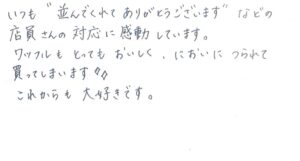 いつも"並んでくれてありがとうございます"などの
店員さんの対応に感動しています。
ワッフルもとってもおいしく、においにつられて
買ってしまいます
これからも大好きです。